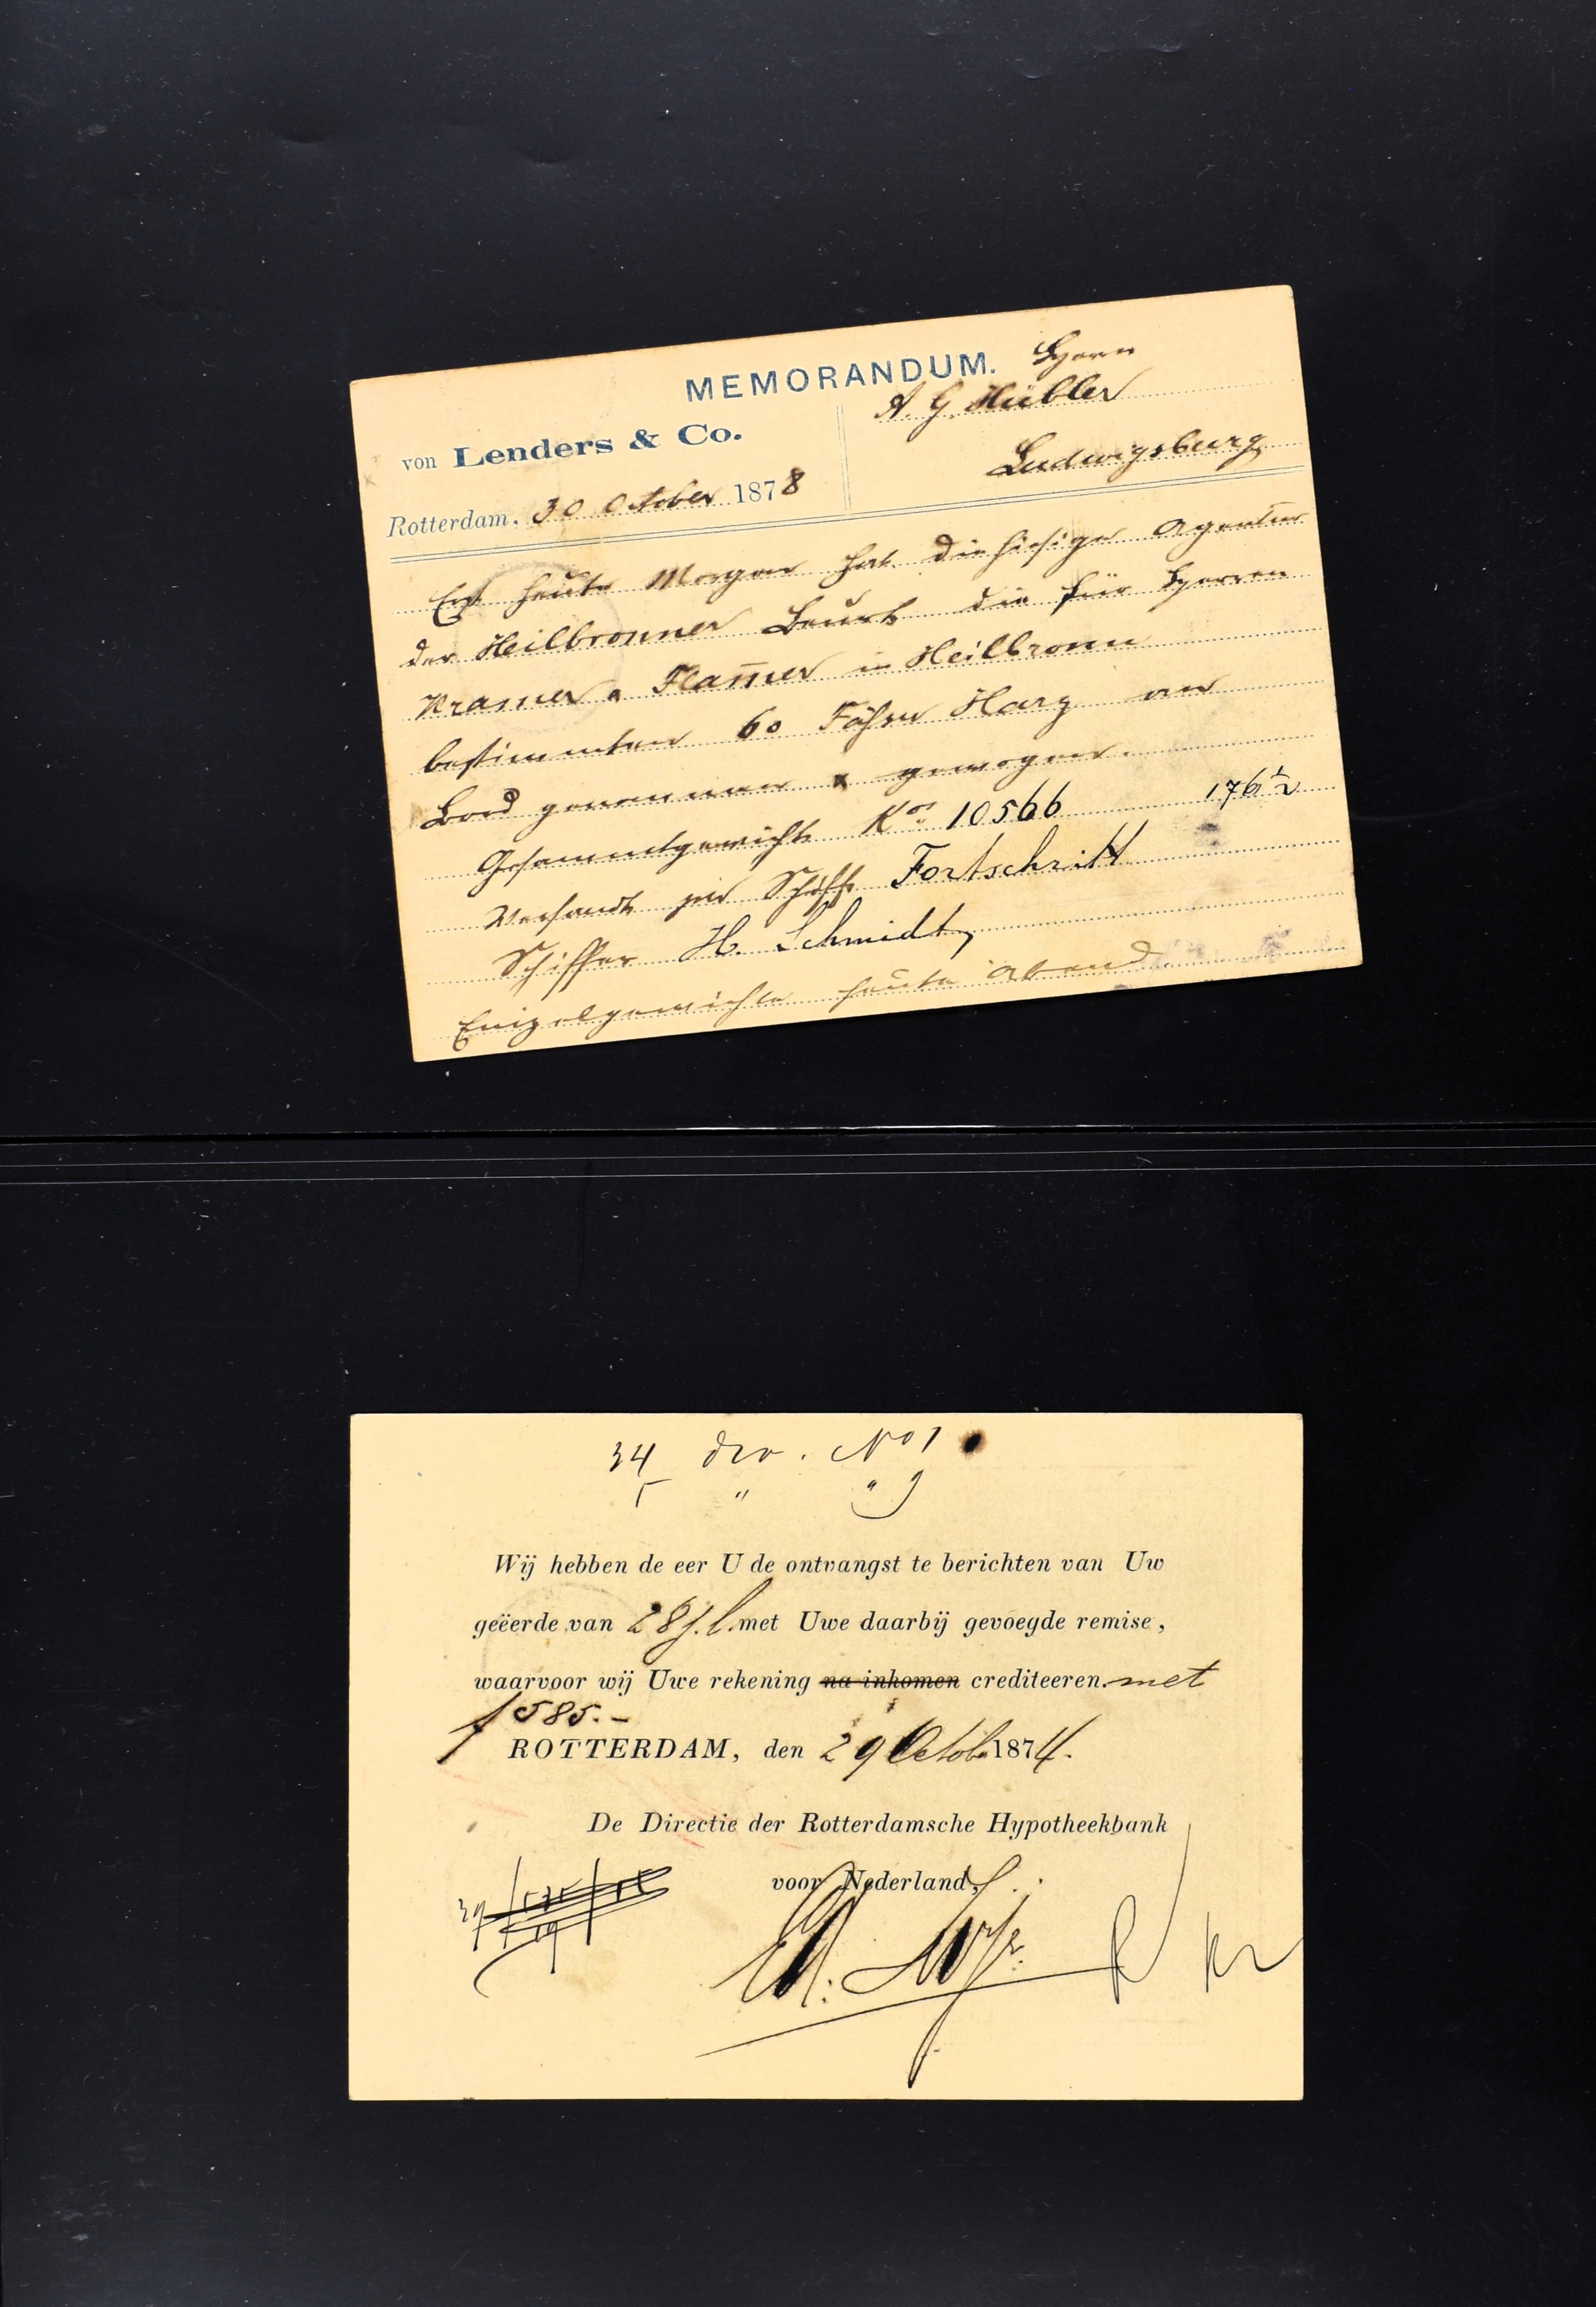 MEMORANDUM.
Herrn
A. G. Hübler
Ludwigsburg
von Lenders & Co.
Rotterdam, 30 October 1878
Erst heute Morgen hat die hiesige Agentur
der Heilbronner Beurt die für Herren
Kramer & Flam̄er in Heilbronn
bestimmten 60 Fässer Harz an
Bord genommen & gewogen.
Gesammtgewicht Kos 10566 176½
Versandt per Schiff Fortschritt
Schiffer H. Schmidt,
Einzelgewichte heute Abend
34 div. No 1
5 " " 9
Wij hebben de eer U de ontvangst te berichten van Uw
geëerde van 28 j.l. met Uwe daarbij gevoegde remise,
waarvoor wij Uwe rekening na inkomen crediteeren. met
f 585.-
ROTTERDAM, den 29 Octob. 1874.
De Directie der Rotterdamsche Hypotheekbank
voor Nederland,